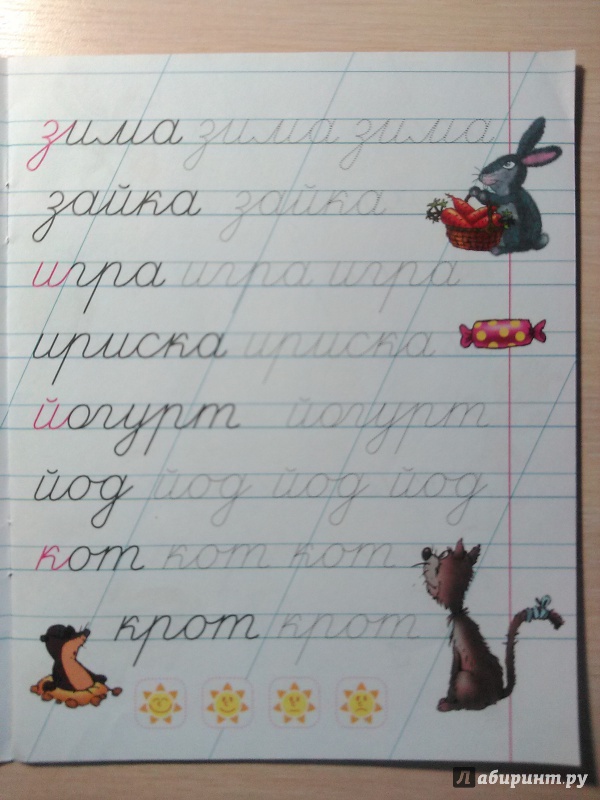 зима зима зима
зайка зайка
игра игра игра
ириска ириска
йогурт йогурт
йод йод йод йод
кот кот кот
крот крот
Лабиринт.ру